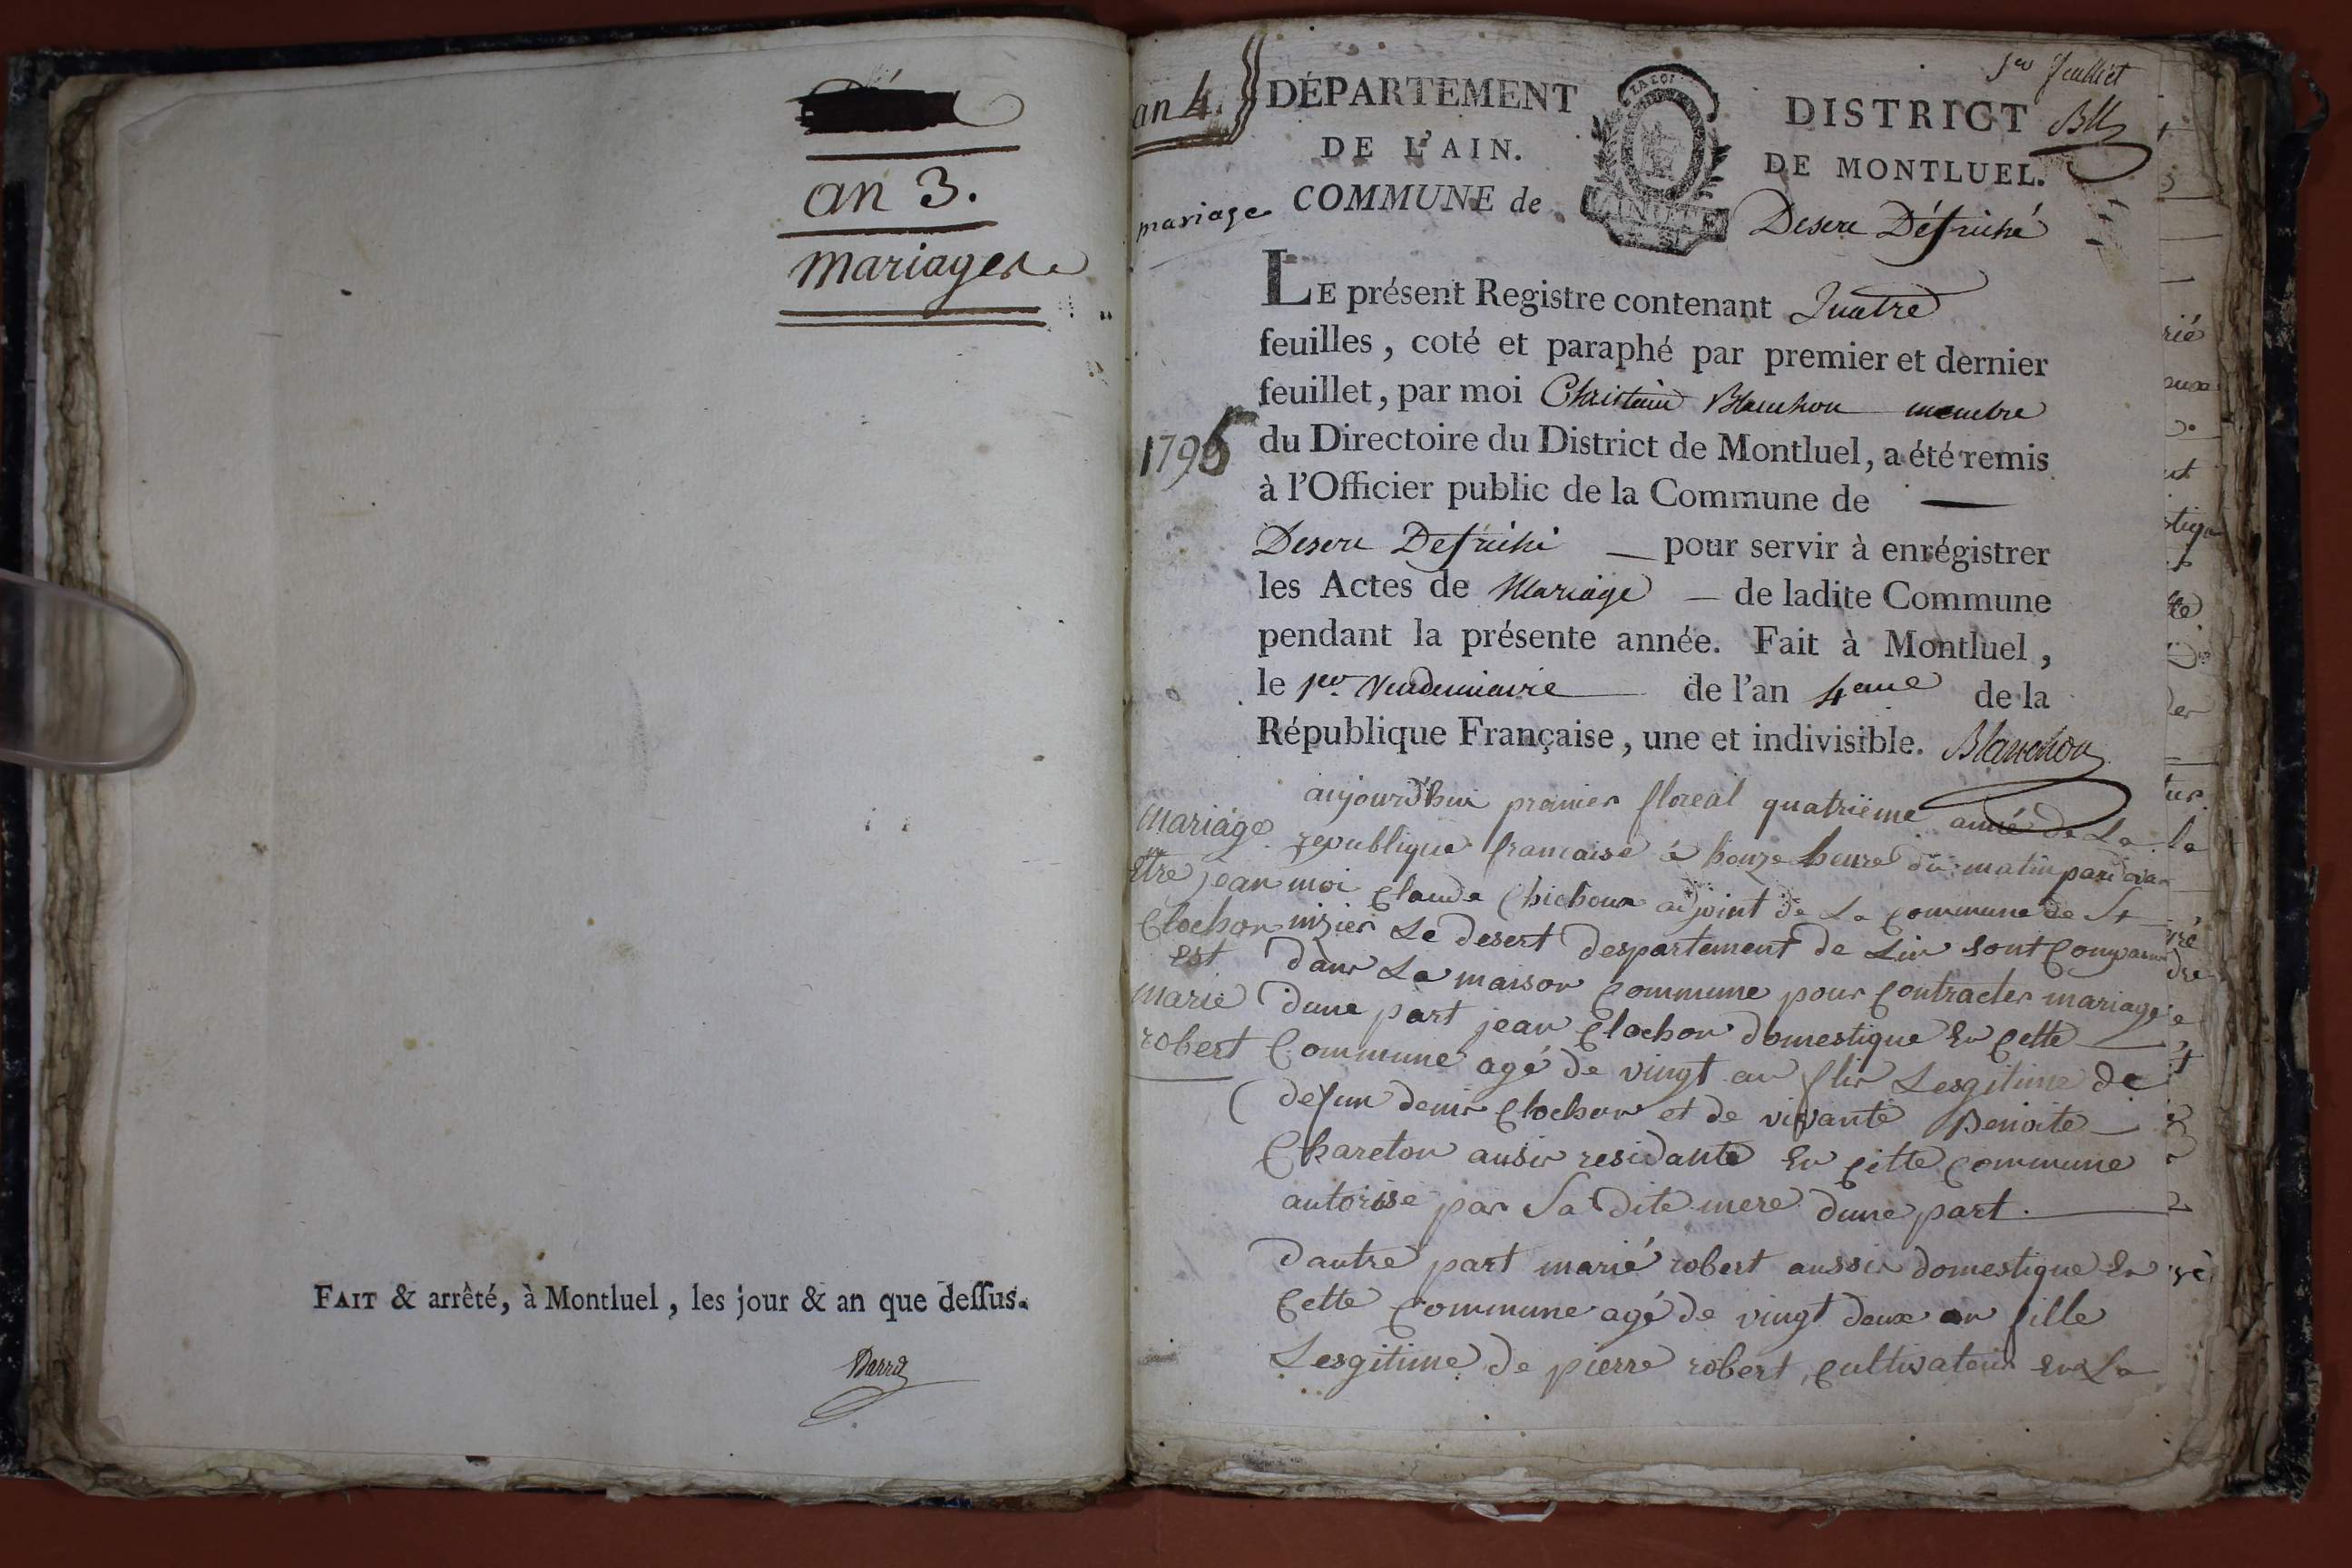 an 3.
Mariages
FAIT & arrêté, à Montluel, les jour & an que deſſus.
1er feuillet
an 4.
DÉPARTEMENT
DE L'AIN.
COMMUNE de
LA LOI
DISTRICT
DE MONTLUEL.
Bll
mariage
Desere Défriché
LE présent Registre contenant Quatre
feuilles, coté et paraphé par premier et dernier
feuillet, par moi Christain Blanchon membre
1795
du Directoire du District de Montluel, a été remis
à l'Officier public de la Commune de —
Desere Defriché — pour servir à enrégistrer
les Actes de Mariage — de ladite Commune
pendant la présente année. Fait à Montluel,
le 1er. Vendemiaire de l'an 4eme de la
République Française, une et indivisible. Blanchon
mariage
Etre jean
Clochon
est
marie
robert
aujourd'hui premier floreal quatrieme année de La
republique francaise a honze heure du matin par devan
moi Claude Chichoux adjoint de La Commune de St
nizier Le desert despartement de Lin sont Comparu
dans La maison Commune pour Contracter mariage
dune part jean Clochon domestique En Cette
Commune agé de vingt an flis Lesgitime de
defun denis Clochon et de vivante Benoite
Chareton aussi residante En Cette Commune
autorisé par Sa dite mere dune part.
dautre part marie robert aussi domestique En
Cette Commune agé de vingt deux an fille
Lesgitime de pierre robert, Cultivateur En La